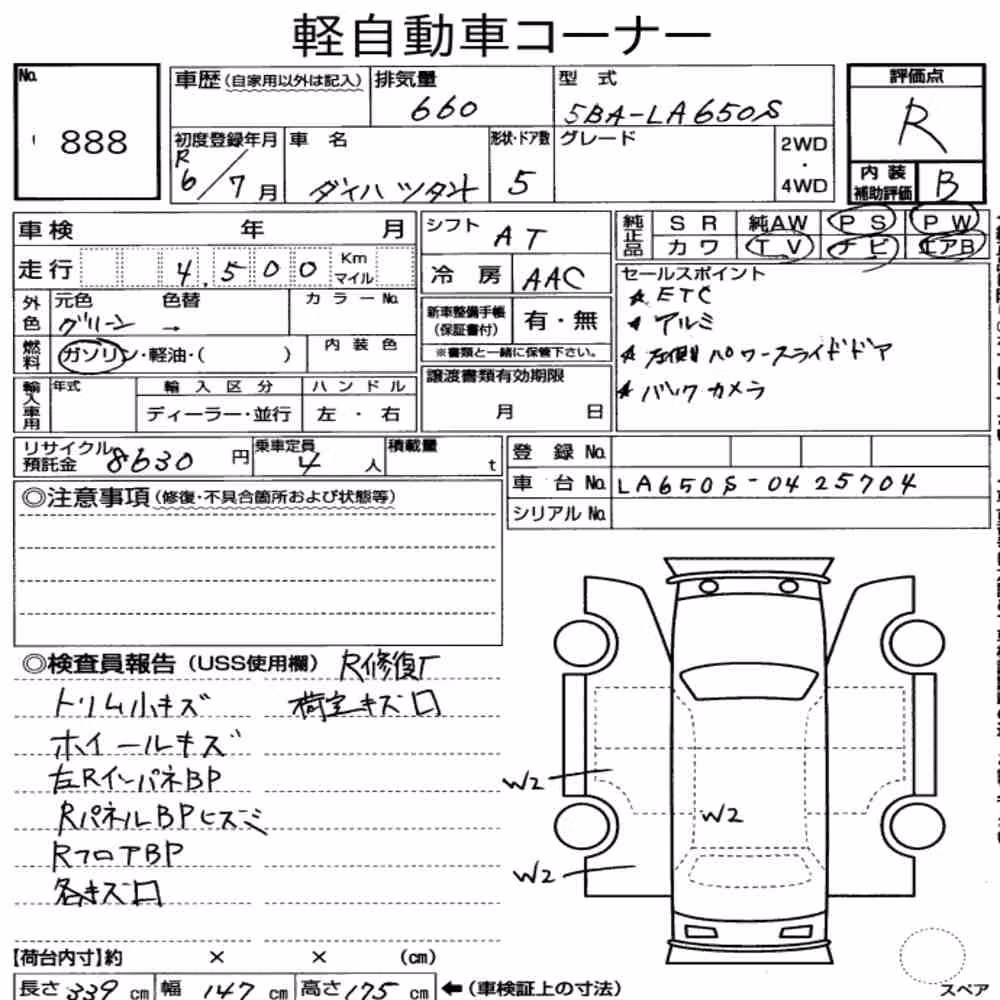 軽自動車コーナー
No. 888
車歴(自家用以外は記入) 排気量 660 型式 5BA-LA650S 評価点 R
初度登録年月 R6/7月 車名 ダイハツタント 形状・ドア数 5 グレード 2WD・4WD 内装補助評価 B
車検 年 月 シフト AT 純正品 SR 純AW PS PW
カワ TV ナビ エアB
走行 4,500 Km マイル 冷房 AAC
セールスポイント
★ETC
★アルミ
★左側パワースライドドア
★バックカメラ
外色 元色 グリーン 色替 → カラーNo.
新車整備手帳(保証書付) 有・無
※書類と一緒に保管下さい。
燃料 ガソリン・軽油・( ) 内装色
輸入車用 年式 輸入区分 ハンドル
ディーラー・並行 左・右
譲渡書類有効期限
月 日
リサイクル預託金 8630円 乗車定員 4人 積載量 t
登録No.
車台No. LA650S-0425704
シリアルNo.
◎注意事項(修復・不具合箇所および状態等)
◎検査員報告(USS使用欄) R修復歴
トリム小キズ 荷室キズ口
ホイールキズ
左RインパネBP
RパネルBPヒズミ
RフロアBP
各キズ口
W2
W2
W2
【荷台内寸】約 × × (cm)
長さ 339cm 幅 147cm 高さ 175cm ←(車検証上の寸法)
スペア